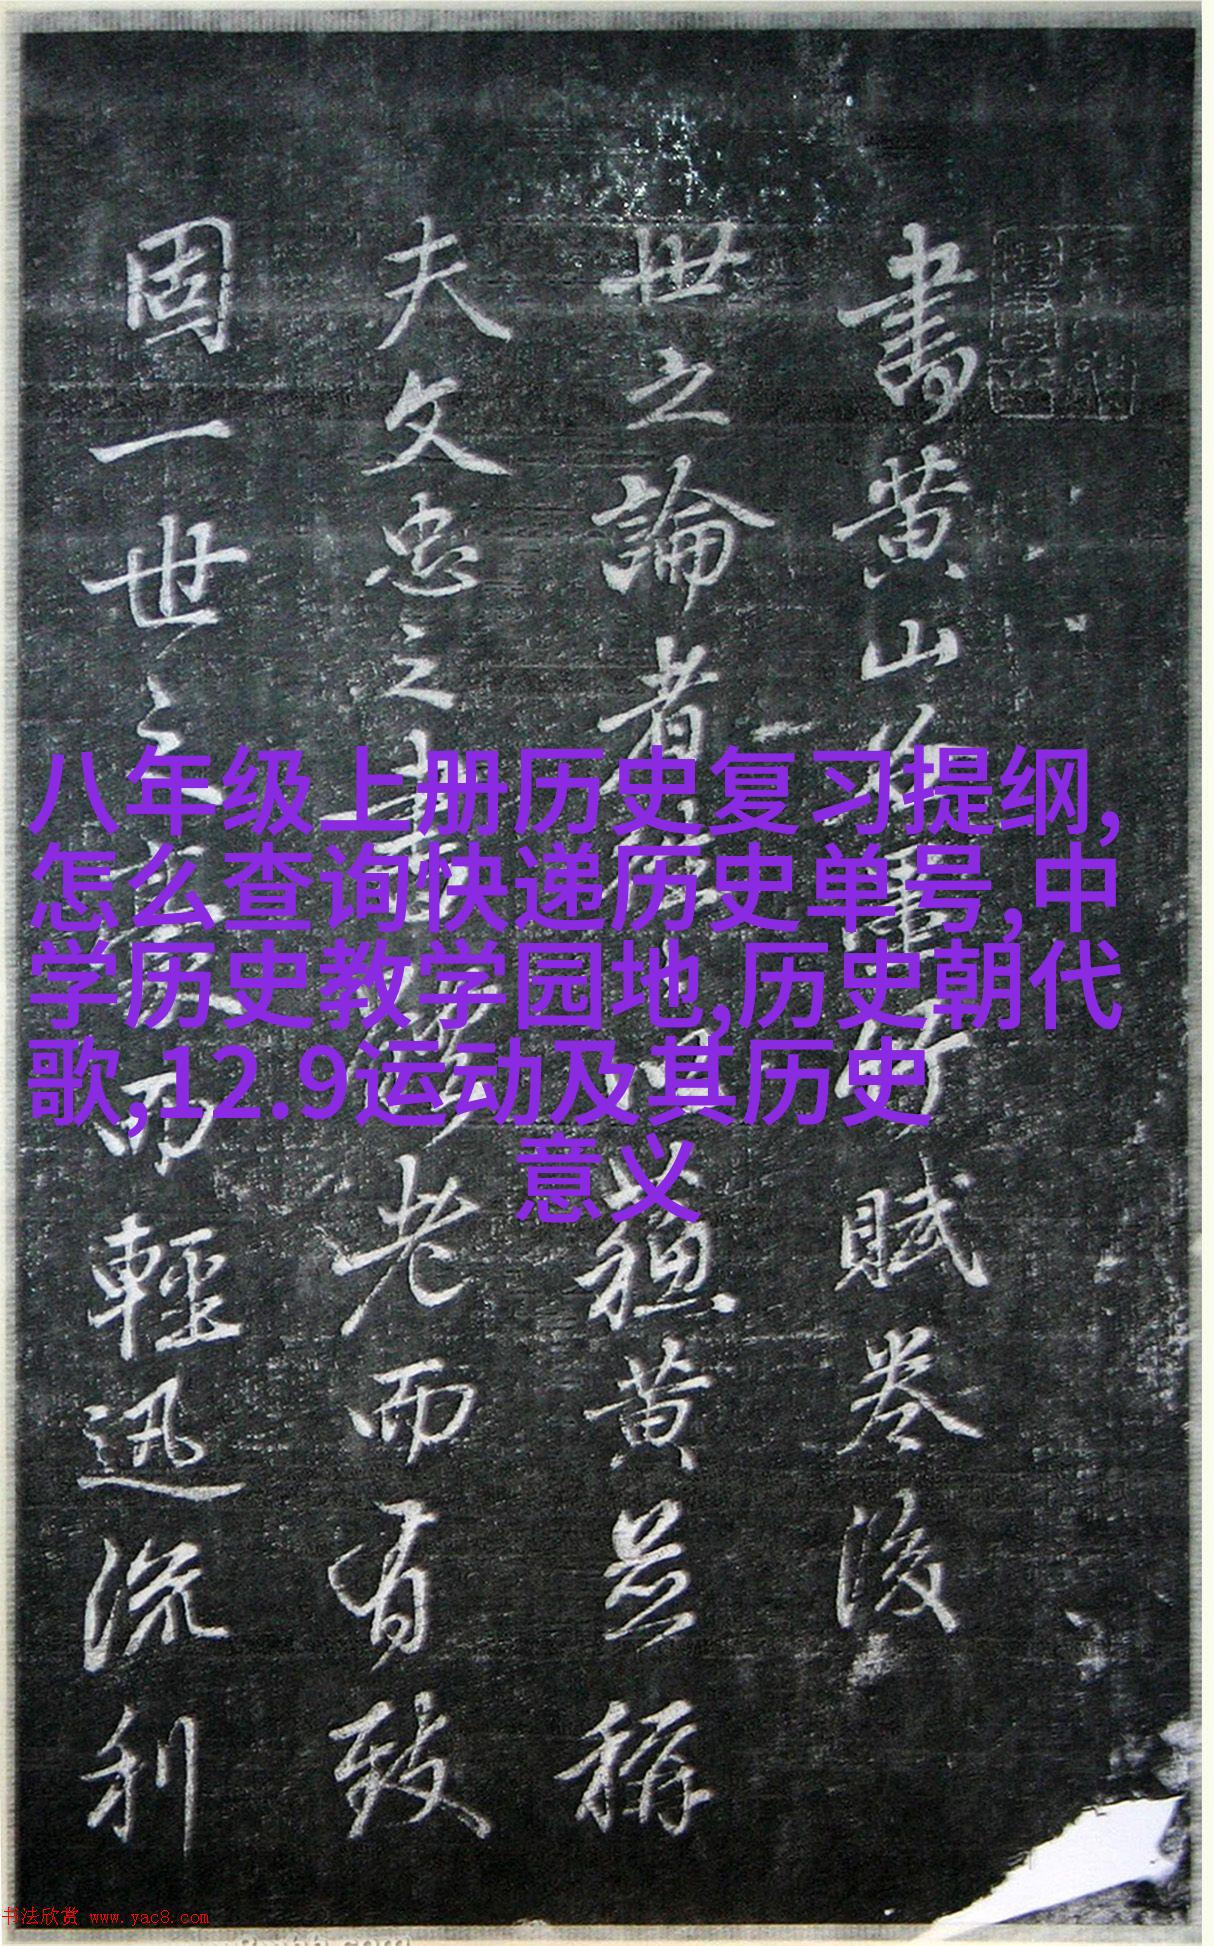 書黄山賦卷後
世之論者黄並稱
夫文忠之書老而有致
固一世之而輕迅流利
八年级上册历史复习提纲,
怎么查询快递历史单号,中
学历史教学园地,历史朝代
歌,12.9运动及其历史
意义
书法欣赏 www.yac8.com